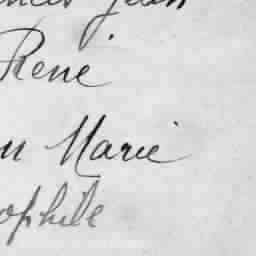 Jean
René
Marie
ophile